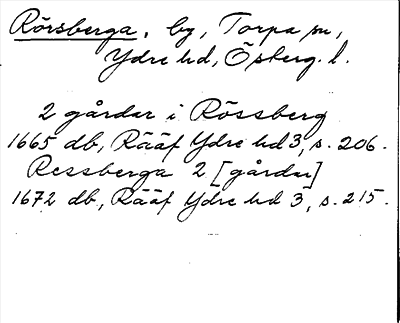 Rörsberga, by, Torpa sn,
Ydre hd, Österg. l.
2 gårdar i Rössberg
1665 db, Rääf Ydre hd 3, s. 206.
Ressberga 2 [gårdar]
1672 db, Rääf Ydre hd 3, s. 215.